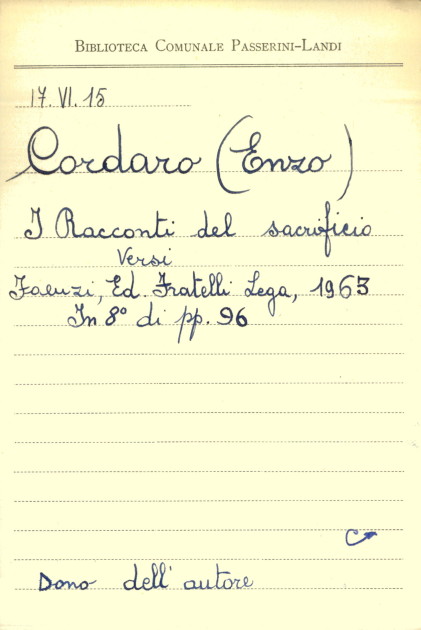 BIBLIOTECA COMUNALE PASSERINI-LANDI
17. VI. 15
Cordaro (Enzo)
I Racconti del sacrificio
Versi
Faenzi, Ed. Fratelli Lega, 1963
In 8° di pp. 96
Dono dell'autore